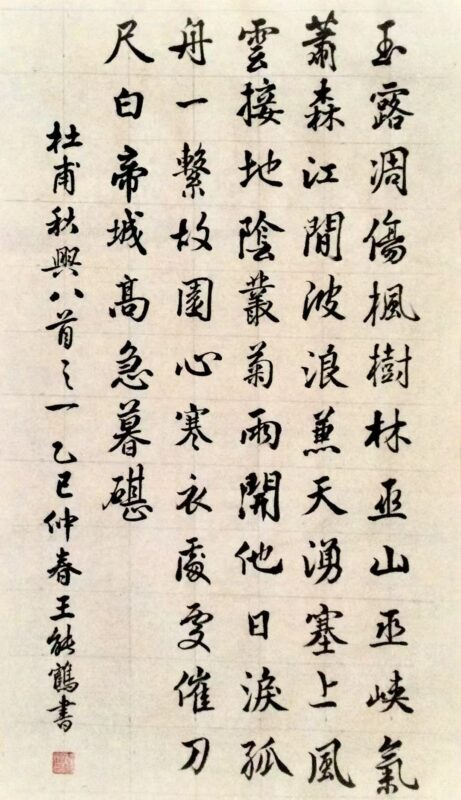 玉露凋傷楓樹林巫山巫峽氣
蕭森江間波浪兼天湧塞上風
雲接地陰叢菊兩開他日淚孤
舟一繫故園心寒衣處處催刀
尺白帝城高急暮碪
杜甫秋興八首之一乙巳仲春王能鶴書